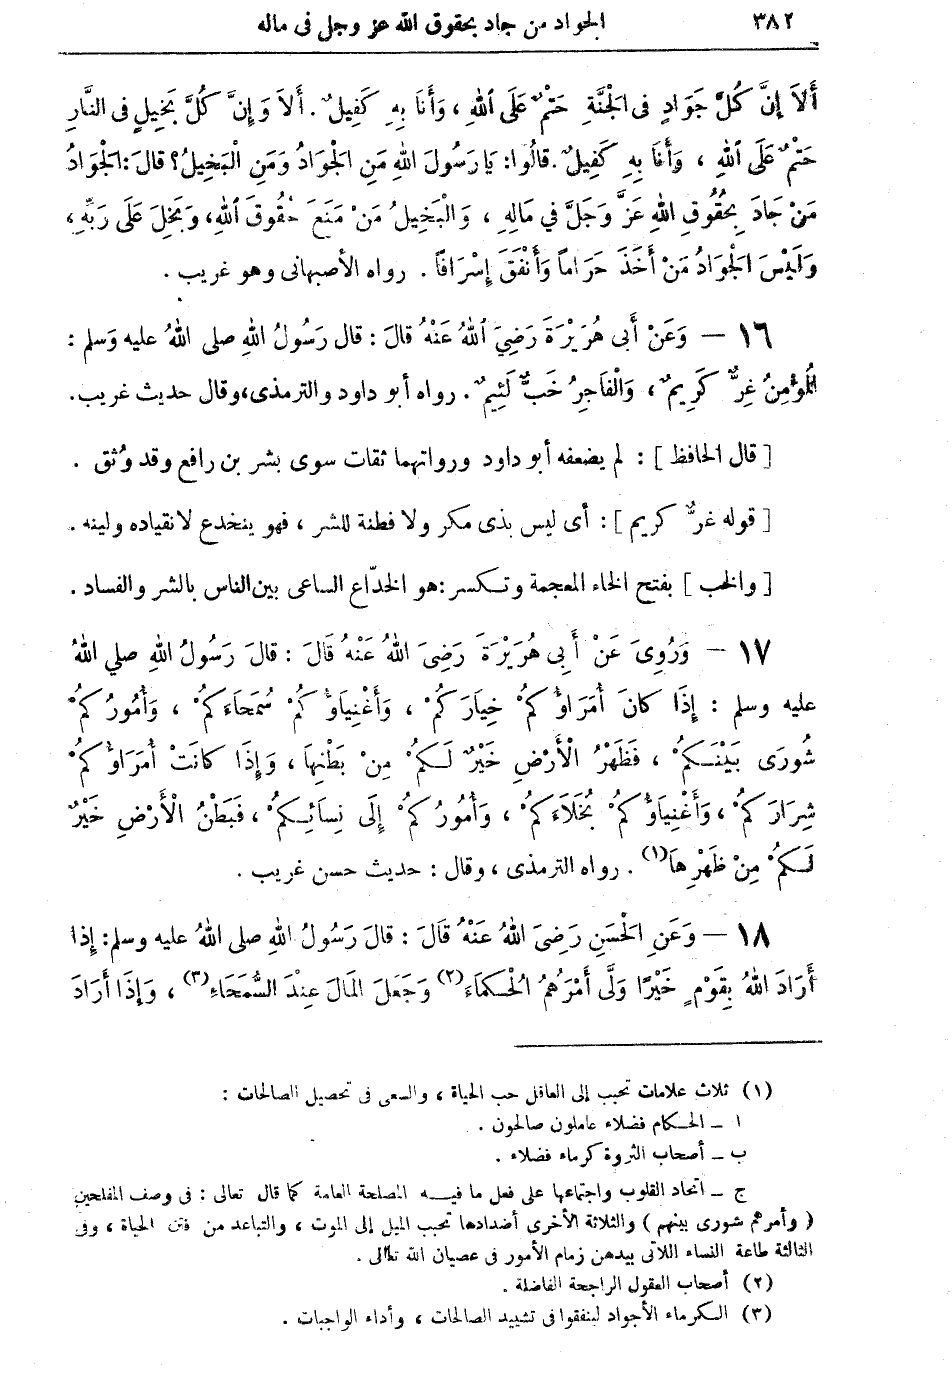 ٣٨٢ الجواد من جاد بحقوق الله عز وجل فى ماله
أَلاَ إِنَّ كُلَّ جَوَادٍ فى الجَنَّةِ حَتْمٌ عَلَى اللهِ ، وَأَنَا بِهِ كَفِيلٌ . أَلاَ وَإِنَّ كُلَّ بَخِيلٍ فى النَّارِ
حَتْمٌ عَلَى اللهِ ، وَأَنَا بِهِ كَفِيلٌ . قالُوا : يَا رَسُولَ اللهِ مَنِ الجَوَادُ وَمَنِ الْبَخِيلُ؟ قالَ : الجَوَادُ
مَنْ جَادَ بِحُقُوقِ اللهِ عَزَّ وَجَلَّ فِي مَالِهِ ، وَالْبَخِيلُ مَنْ مَنَعَ حُقُوقَ اللهِ، وَبَخِلَ عَلَى رَبِّهِ ،
وَلَيْسَ الجَوَادُ مَنْ أَخَذَ حَرَاماً وَأَنْفَقَ إِسْرَافاً . رواه الأصبهانى وهو غريب .
١٦ — وَعَنْ أَبى هُرَيْرَةَ رَضِيَ اللهُ عَنْهُ قالَ : قال رَسُولُ اللهِ صلى اللهُ عليه وَسلم :
المُؤْمِنُ غِرٌّ كَرِيمٌ ، وَالْفَاجِرُ خَبٌّ لَئِيمٌ . رواه أبو داود والترمذى، وقال حديث غريب .
[ قال الحافظ ] : لم يضعفه أبو داود ورواتهما ثقات سوى بشر بن رافع وقد وُثق .
[ قوله غرٌّ كريم ] : أى ليس بذى مكر ولا فطنة للشر ، فهو ينخدع لانقياده ولينه .
[ والخب ] بفتح الخاء المعجمة وتكسر : هو الخدّاع الساعى بين الناس بالشر والفساد .
١٧ — وَرُوِىَ عَنْ أَبِى هُرَيْرَةَ رَضِىَ اللهُ عَنْهُ قَالَ : قالَ رَسُولُ اللهِ صلي اللهُ
عليه وسلم : إِذَا كانَ أُمَرَاؤُكُمْ خِيَارَكُمْ ، وَأَغْنِيَاؤُكُمْ سُمَحَاءَكُمْ ، وَأُمُورُكُمْ
شُورَى بَيْنَكُمْ ، فَظَهْرُ الْأَرْضِ خَيْرٌ لَكُمْ مِنْ بَطْنِهَا ، وَإِذَا كانَتْ أُمَرَاؤُكُمْ
شِرَارَكُمْ ، وَأَغْنِيَاؤُكُمْ بُخَلَاءَكُمْ ، وَأُمُورُكُمْ إِلَى نِسَائِكُمْ ، فَبَطْنُ الْأَرْضِ خَيْرٌ
لَكُمْ مِنْ ظَهْرِهَا(١) . رواه الترمذى ، وقال : حديث حسن غريب .
١٨ — وَعَنِ الحَسَنِ رَضِىَ اللهُ عَنْهُ قَالَ : قالَ رَسُولُ اللهِ صلى اللهُ عليه وسلم : إِذا
أَرَادَ اللهُ بِقَوْمٍ خَيْرًا وَلَّى أَمْرَهُمُ الْحُكَمَاءَ(٢) وَجَعَلَ المَالَ عِنْدَ السُّمَحَاءِ(٣) ، وَإِذَا أَرَادَ
(١) ثلاث علامات تحبب إلى العاقل حب الحياة ، والسعى فى تحصيل الصالحات :
ا ـ الحكام فضلاء عاملون صالحون .
ب ـ أصحاب الثروة كرماء فضلاء .
ج ـ اتحاد القلوب واجتماعها على فعل ما فيه المصلحة العامة كما قال تعالى : فى وصف المفلحين
( وأمرهم شورى بينهم ) والثلاثة الأخرى أضدادها تحبب الميل إلى الموت ، والتباعد من فتن الحياة ، وفى
الثالثة طاعة النساء اللاتى بيدهن زمام الأمور فى عصيان الله تعالى .
(٢) أصحاب العقول الراجحة الفاضلة .
(٣) الكرماء الأجواد لينفقوا فى تشييد الصالحات ، وأداء الواجبات .